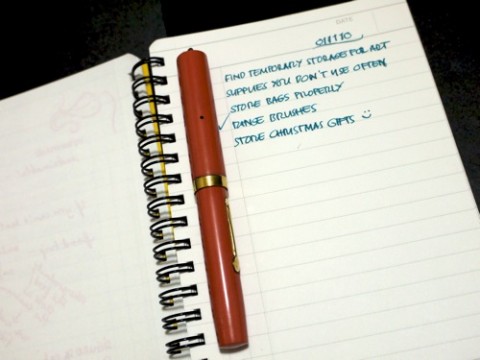 DATE
011110
FIND TEMPORARY STORAGE FOR ART
SUPPLIES YOU DON'T USE OFTEN
STORE BAGS PROPERLY
RINSE BRUSHES
STORE CHRISTMAS GIFTS